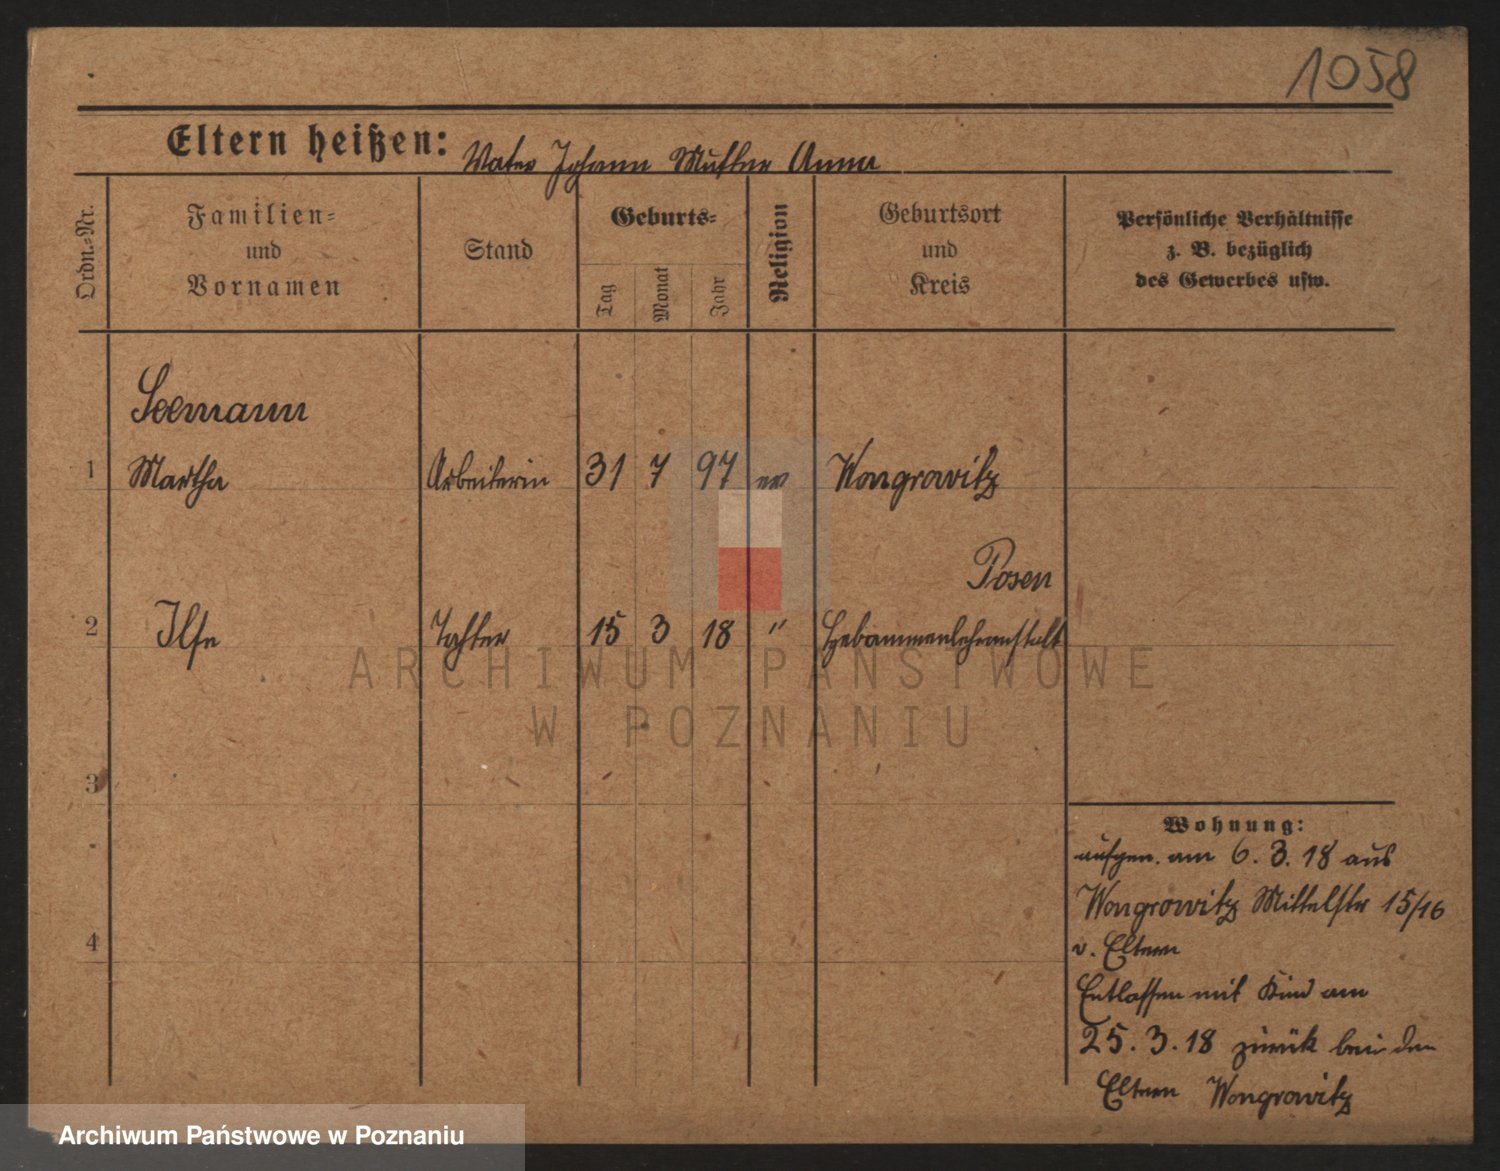 1058
Eltern heißen: Vater Johann Mutter Anna
Ordn.-Nr.
Familien-
und
Vornamen
Stand
Geburts-
Tag
Monat
Jahr
Religion
Geburtsort
und
Kreis
Persönliche Verhältnisse
z. B. bezüglich
des Gewerbes usw.
Seemann
1 Martha Arbeiterin 31 7 97 ev Wongrowitz
Posen
2 Ilse Tochter 15 3 18 " Hebammenlehranstalt
ARCHIWUM PAŃSTWOWE
W POZNANIU
3
4
Wohnung:
aufgen. am 6. 3. 18 aus
Wongrowitz Mittelstr 15/16
v. Eltern
Entlassen mit Kind am
25. 3. 18 zurück bei den
Eltern Wongrowitz
Archiwum Państwowe w Poznaniu